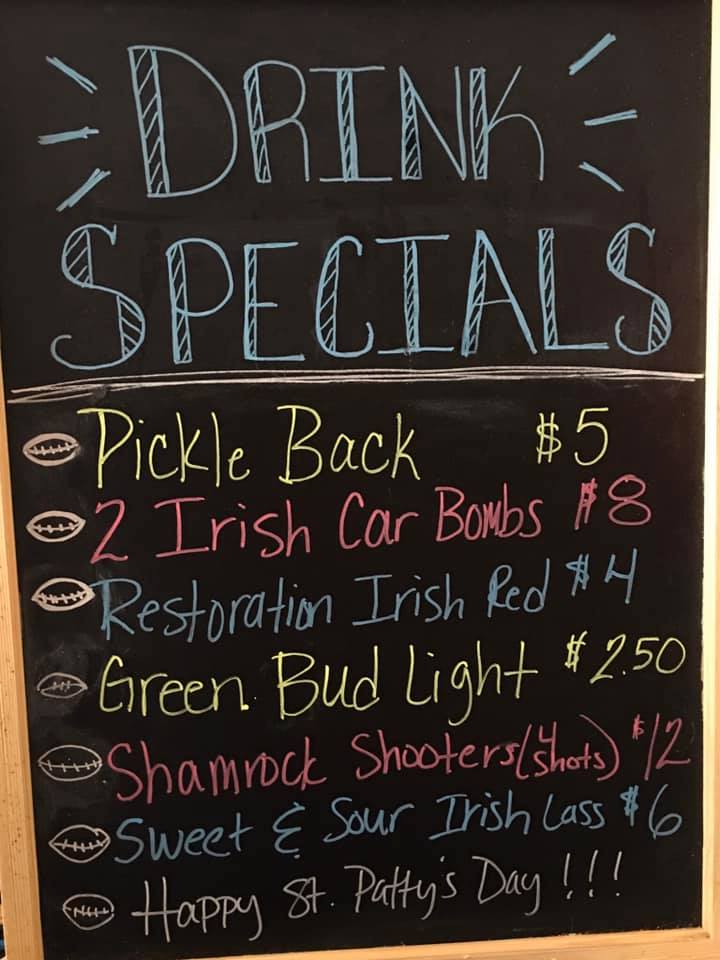 DRINK
SPECIALS
Pickle Back $5
2 Irish Car Bombs $8
Restoration Irish Red $4
Green Bud Light $2.50
Shamrock Shooters (4 shots) $12
Sweet & Sour Irish Lass $6
Happy St. Patty's Day !!!